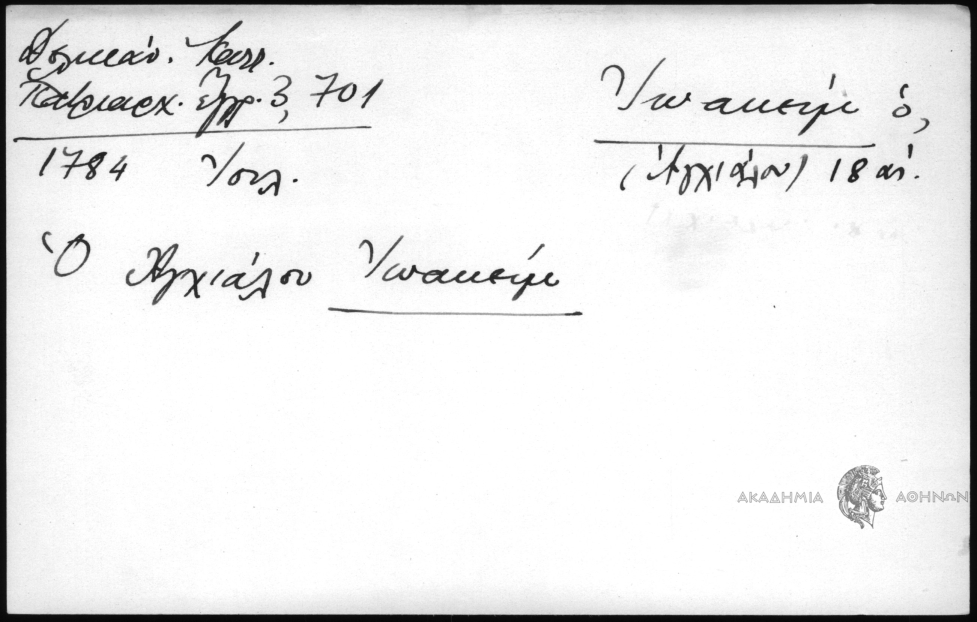 Δελικάν. Καλλ.
Πατριαρχ. ἔγγρ. 3, 701
Ἰωακείμ ὁ,
1784 Ἰουλ.
(Ἀγχιάλου) 18 αἰ.
Ὁ Ἀγχιάλου Ἰωακείμ
ΑΚΑΔΗΜΙΑ ΑΘΗΝΩΝ